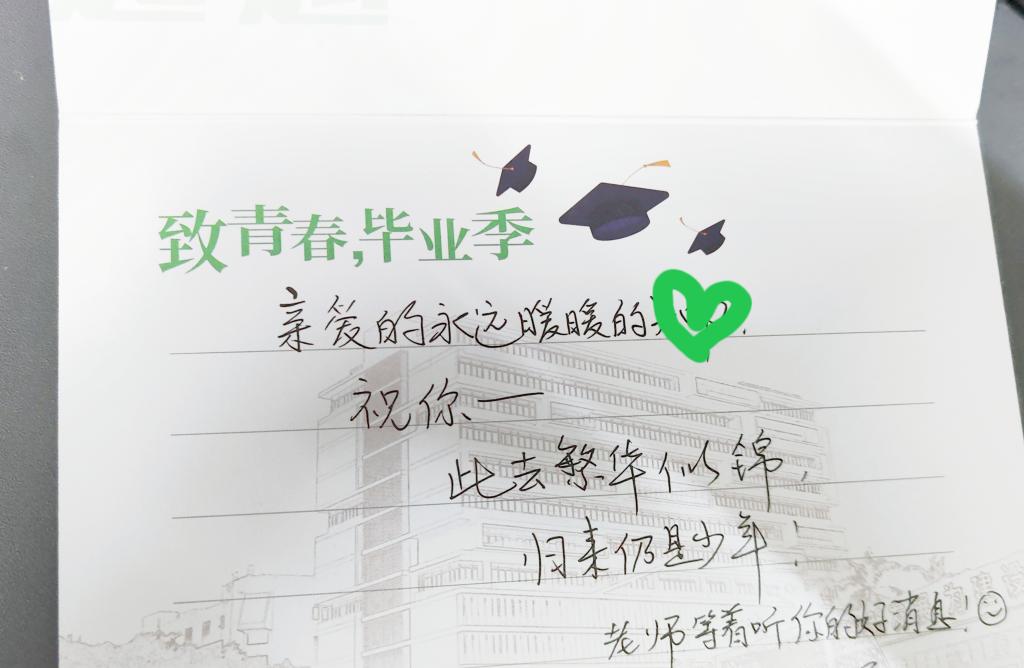 致青春,毕业季
亲爱的永远暖暖的
祝你——
此去繁华似锦,
归来仍是少年!
老师等着听你的好消息!